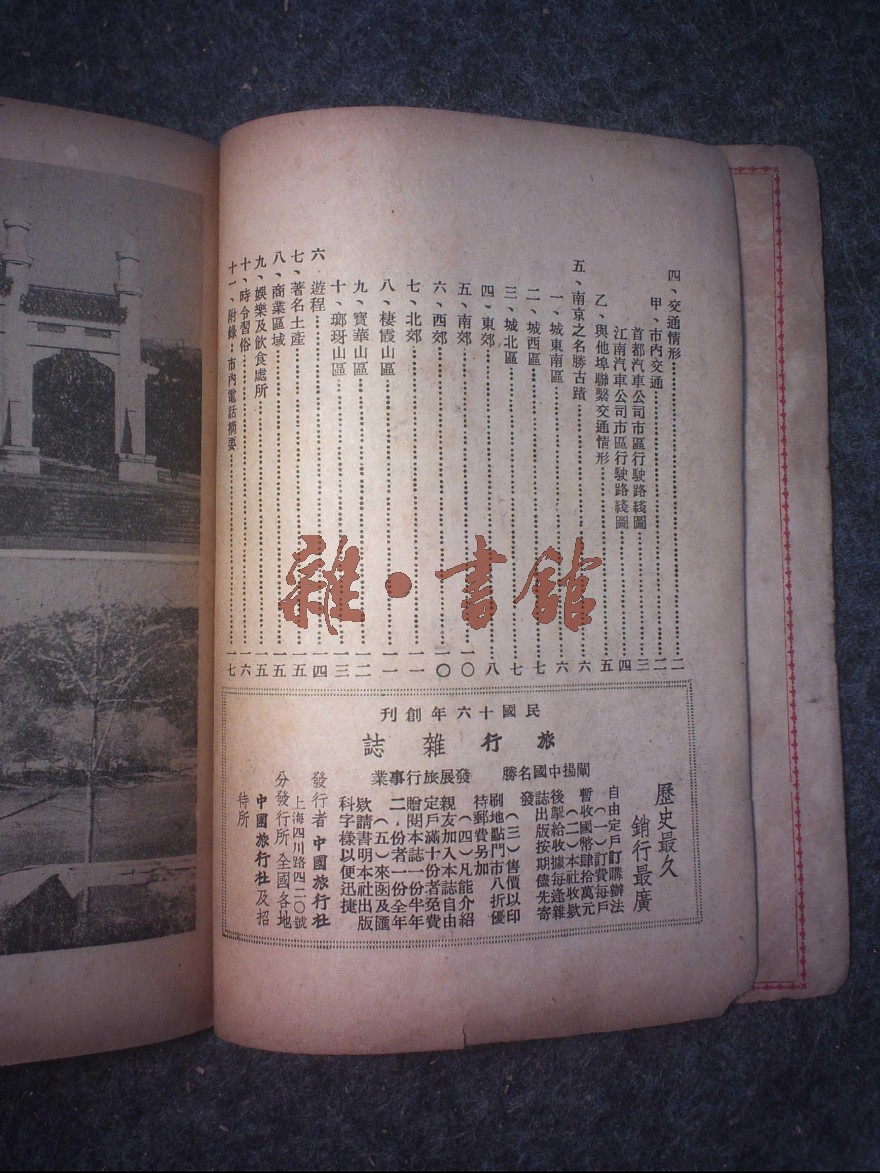 四、交通情形……二
甲、市內交通……二
首都汽車公司市區行駛路綫圖……三
江南汽車公司市區行駛路綫圖……四
乙、與他埠聯繫交通情形……五
五、南京之名勝古蹟……六
一、城東南區……六
二、城西區……七
三、城北區……七
四、東郊……八
五、南郊……一〇
六、西郊……一〇
七、北郊……一一
八、棲霞山區……一一
九、寶華山區……一二
十、瑯玡山區……一三
六、遊程……一四
七、著名土產……一五
八、商業區域……一五
九、娛樂及飲食處所……一五
十、時令習俗……一六
十一、附錄：市內電話摘要……一七
民國十六年創刊
旅行雜誌
闡揚中國名勝 發展旅行事業
歷史最久
銷行最廣
自由定戶訂購辦法
（一）訂費每戶
暫收國幣肆拾萬元
（二）本社收款
後掣給收據每逢雜
誌出版按期儘先寄
發
（三）售價以印
刷地點門市八折優
待郵費另加
（四）凡能介紹
親友加入本誌自由
定戶滿十份者免費
贈閱本誌一份半年
二份者一份全年
（五）來函及匯
欵請書明本社出版
科字樣以便迅捷
發行者 中國旅行社
上海四川路四二〇號
分發行所 全國各地
中國旅行社及招
待所
雜·書館